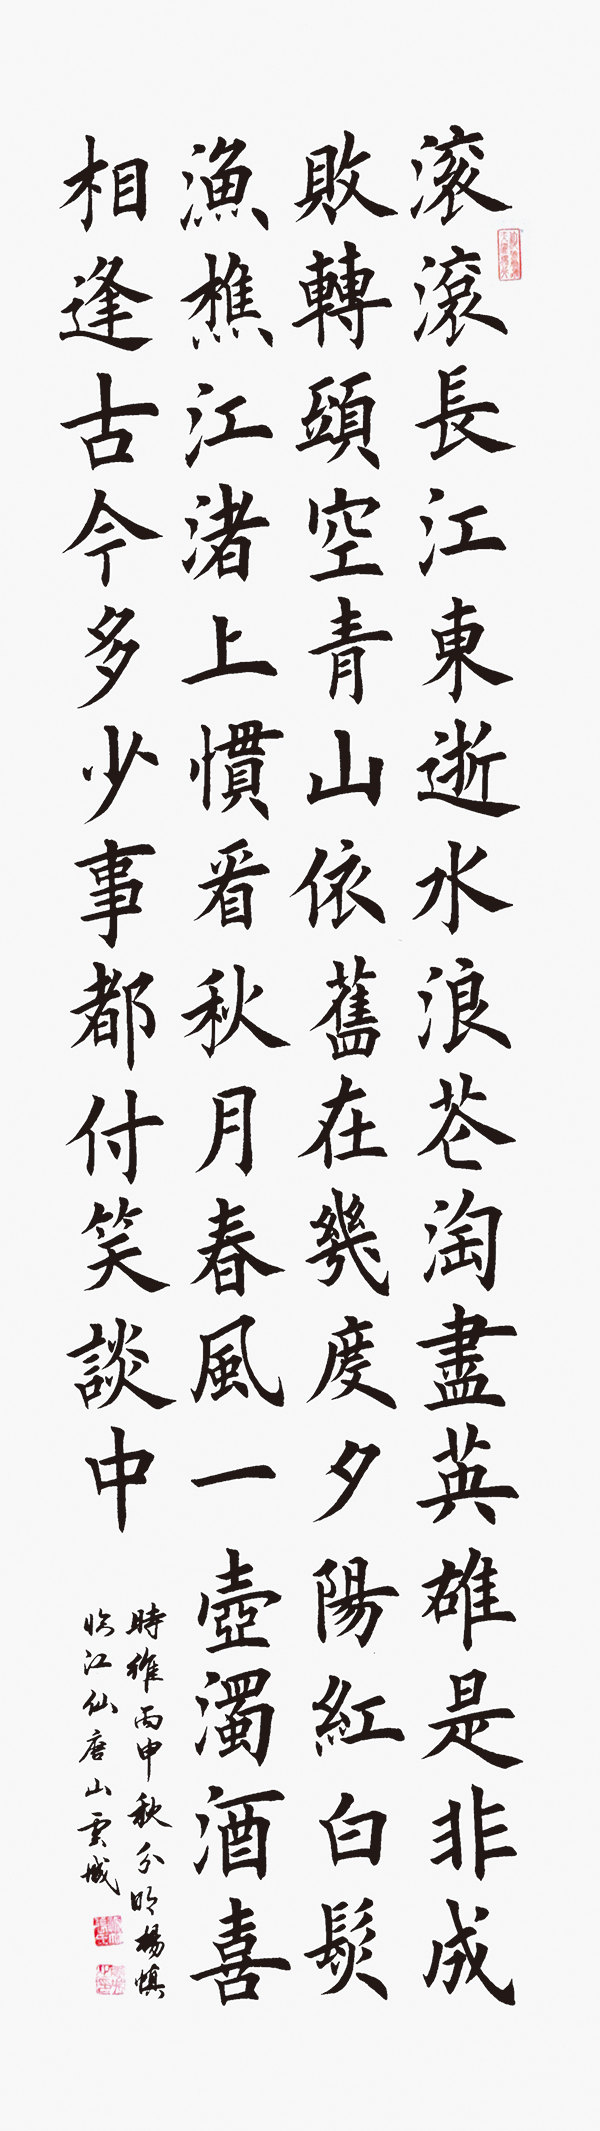 滚滚長江東逝水浪苍淘盡英雄是非成
敗轉頭空青山依舊在幾度夕陽紅白髮
漁樵江渚上慣看秋月春風一壺濁酒喜
相逢古今多少事都付笑談中
時維丙申秋分明楊慎
臨江仙唐山雲城